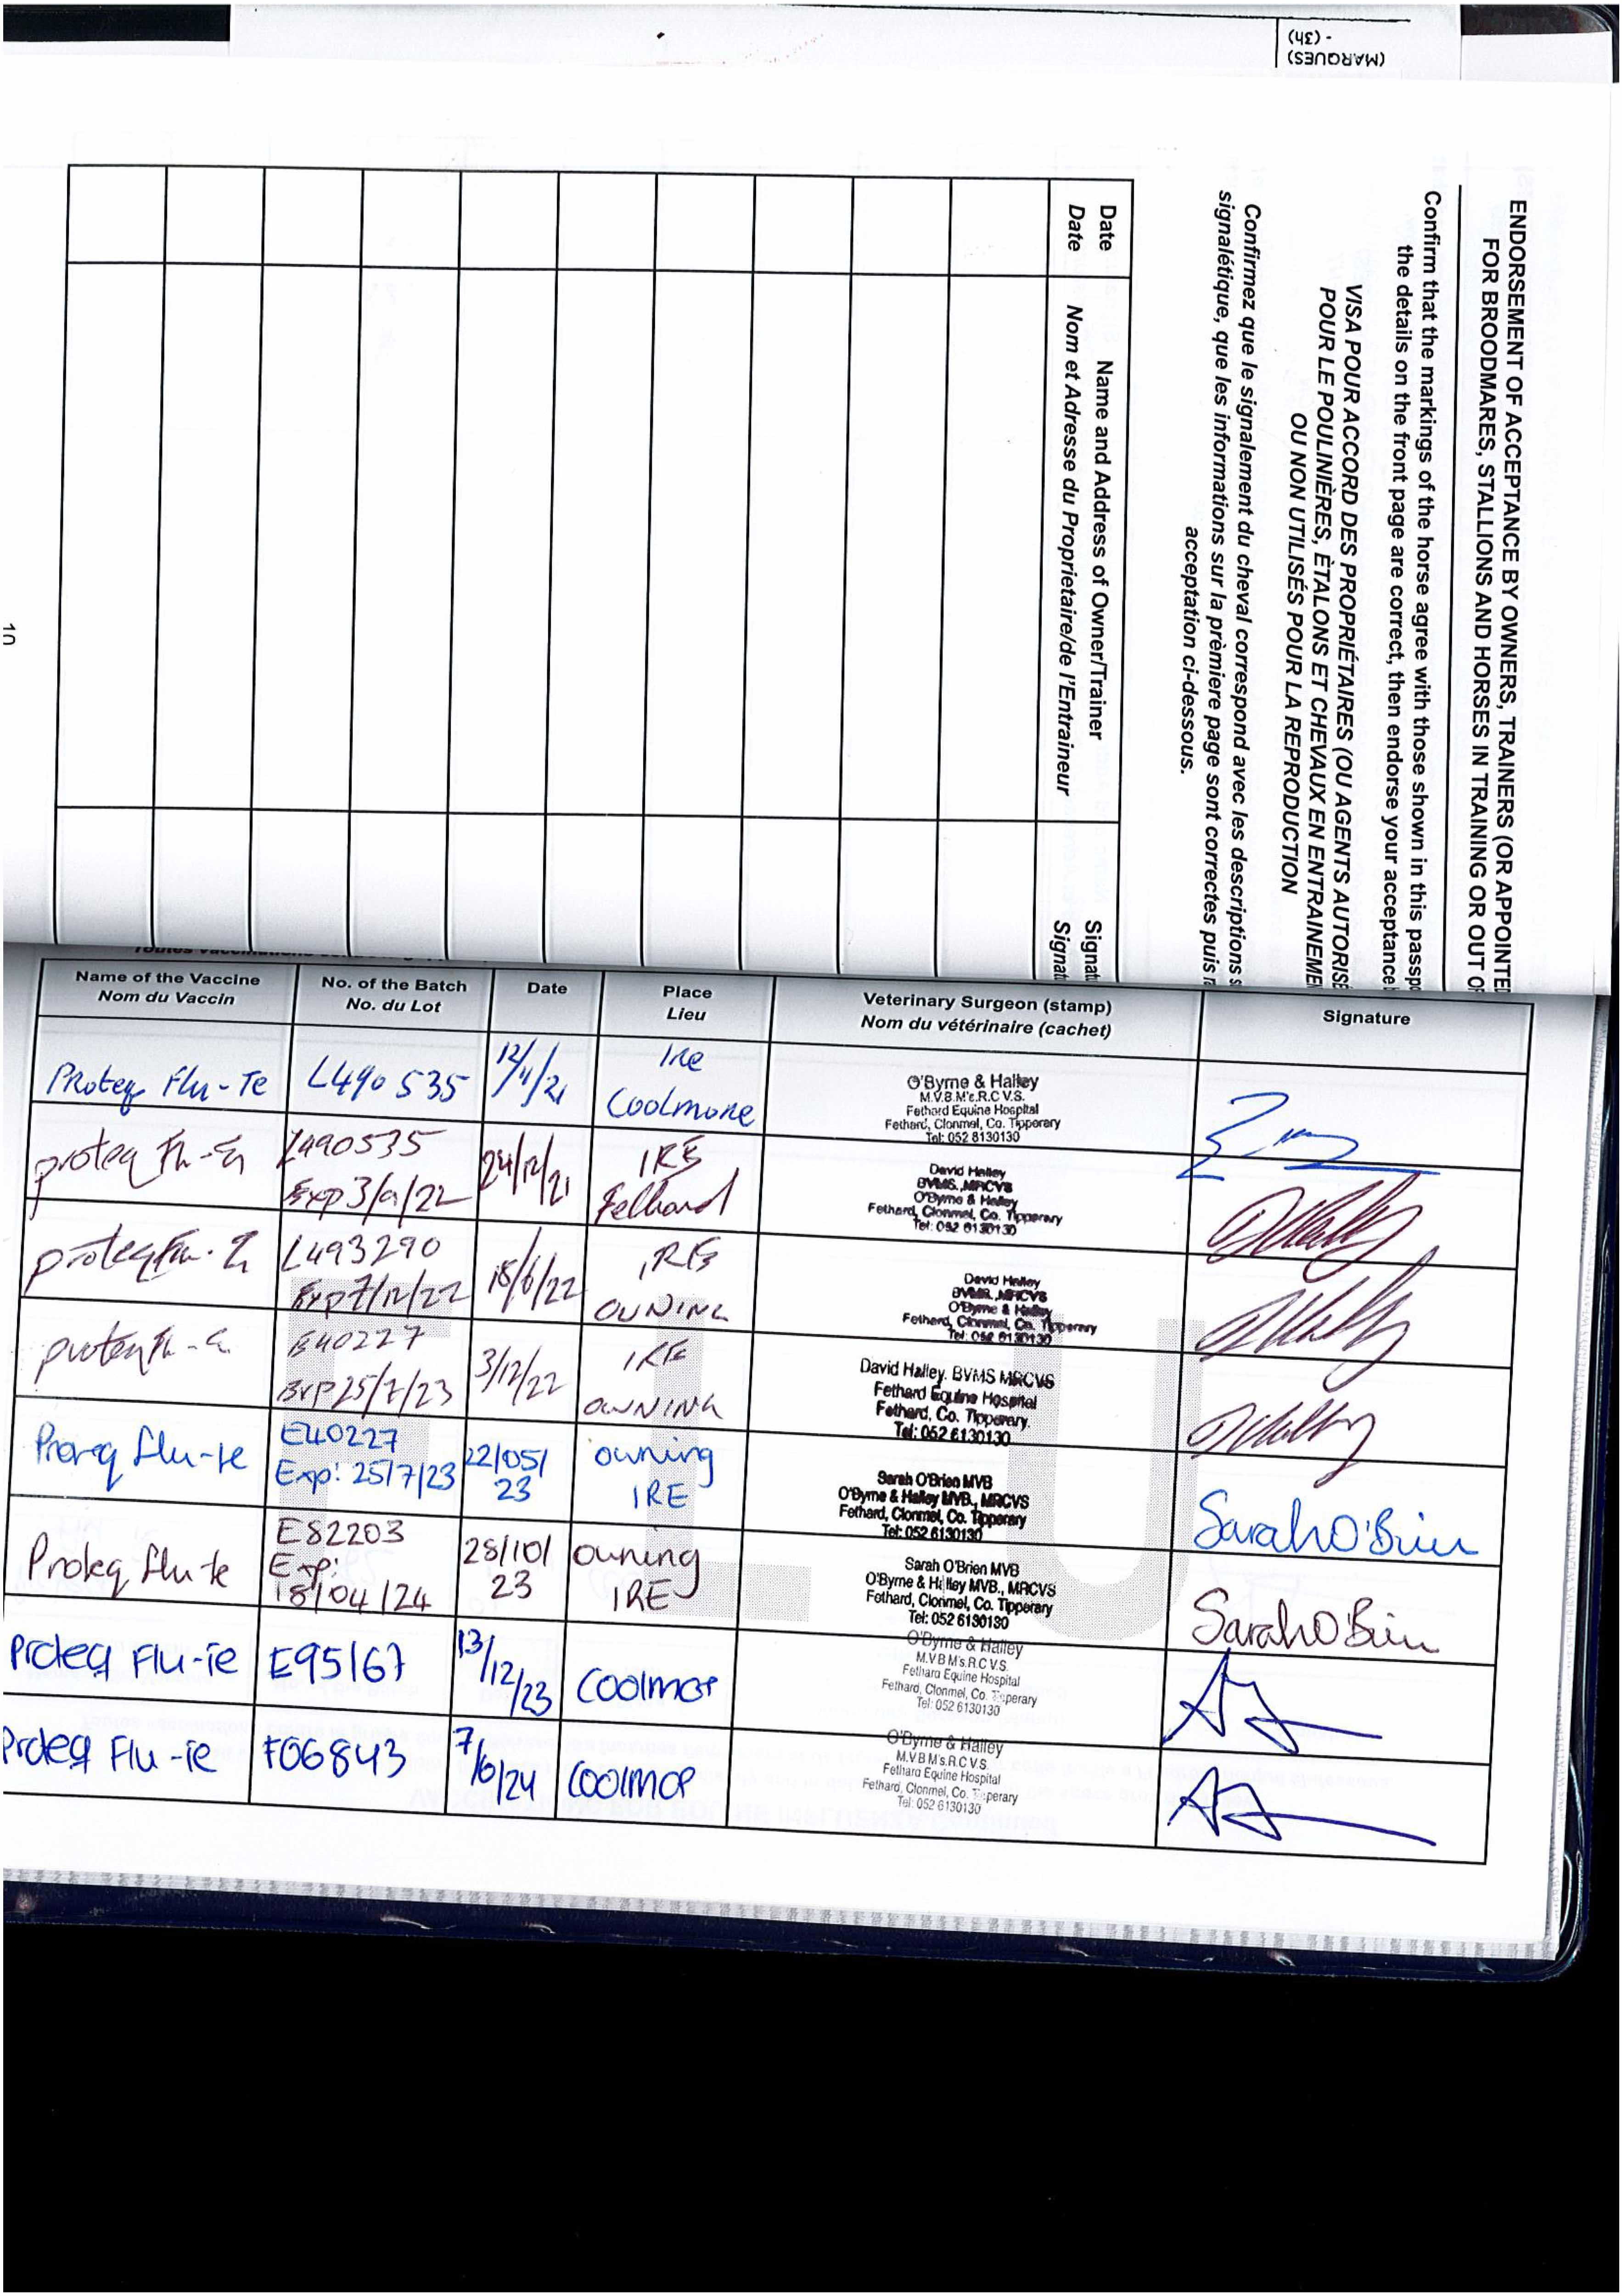 (MARQUES)
- (3h)
ENDORSEMENT OF ACCEPTANCE BY OWNERS, TRAINERS (OR APPOINTED
FOR BROODMARES, STALLIONS AND HORSES IN TRAINING OR OUT OF
Confirm that the markings of the horse agree with those shown in this passpo
the details on the front page are correct, then endorse your acceptance
VISA POUR ACCORD DES PROPRIÉTAIRES (OU AGENTS AUTORISÉ
POUR LE POULINIÈRES, ÈTALONS ET CHEVAUX EN ENTRAINEME
OU NON UTILISÉS POUR LA REPRODUCTION
Confirmez que le signalement du cheval correspond avec les descriptions s
signalétique, que les informations sur la prèmiere page sont correctes puis
acceptation ci-dessous.
Date Name and Address of Owner/Trainer Signat
Date Nom et Adresse du Proprietaire/de l'Entraineur Signat
10
Name of the Vaccine
Nom du Vaccin
No. of the Batch
No. du Lot
Date
Place
Lieu
Veterinary Surgeon (stamp)
Nom du vétérinaire (cachet)
Signature
Proteq Flu-Te
L490535
12/11/21
Ire
Coolmore
O'Byrne & Halley
M.V.B.M's.R.C.V.S.
Fethard Equine Hospital
Fethard, Clonmel, Co. Tipperary
Tel: 052 8130130
proteq
L490535
Exp 3/9/22
24/12/21
IRE
Fethard
David Halley
BVMS, MRCVS
O'Byrne & Halley
Fethard, Clonmel, Co. Tipperary
Tel: 052 6130130
proteq
L493290
Exp 7/12/22
18/6/22
IRE
OWNING
David Halley
BVMS, MRCVS
O'Byrne & Halley
Fethard, Clonmel, Co. Tipperary
Tel: 052 6130130
E40227
Exp 25/7/23
3/12/22
IRE
OWNING
David Halley. BVMS MRCVS
Fethard Equine Hospital
Fethard, Co. Tipperary.
Tel: 052 6130130
Proteq flu-te
E40227
Exp: 25/7/23
22/05/
23
owning
IRE
Sarah O'Brien MVB
O'Byrne & Halley MVB., MRCVS
Fethard, Clonmel, Co. Tipperary
Tel: 052 6130130
Sarah O'Brien
Proteq flu-te
E82203
Exp:
18/04/24
28/10/
23
owning
IRE
Sarah O'Brien MVB
O'Byrne & Halley MVB., MRCVS
Fethard, Clonmel, Co. Tipperary
Tel: 052 6130130
Sarah O'Brien
Proteq Flu-Te
E95167
13/12/23
O'Byrne & Halley
M.V.B M's.R.C.V.S.
Fethard Equine Hospital
Fethard, Clonmel, Co. Tipperary
Tel: 052 6130130
Proteq Flu-Te
F06843
O'Byrne & Halley
M.V.B M's.R.C.V.S.
Fethard Equine Hospital
Fethard, Clonmel, Co. Tipperary
Tel: 052 6130130